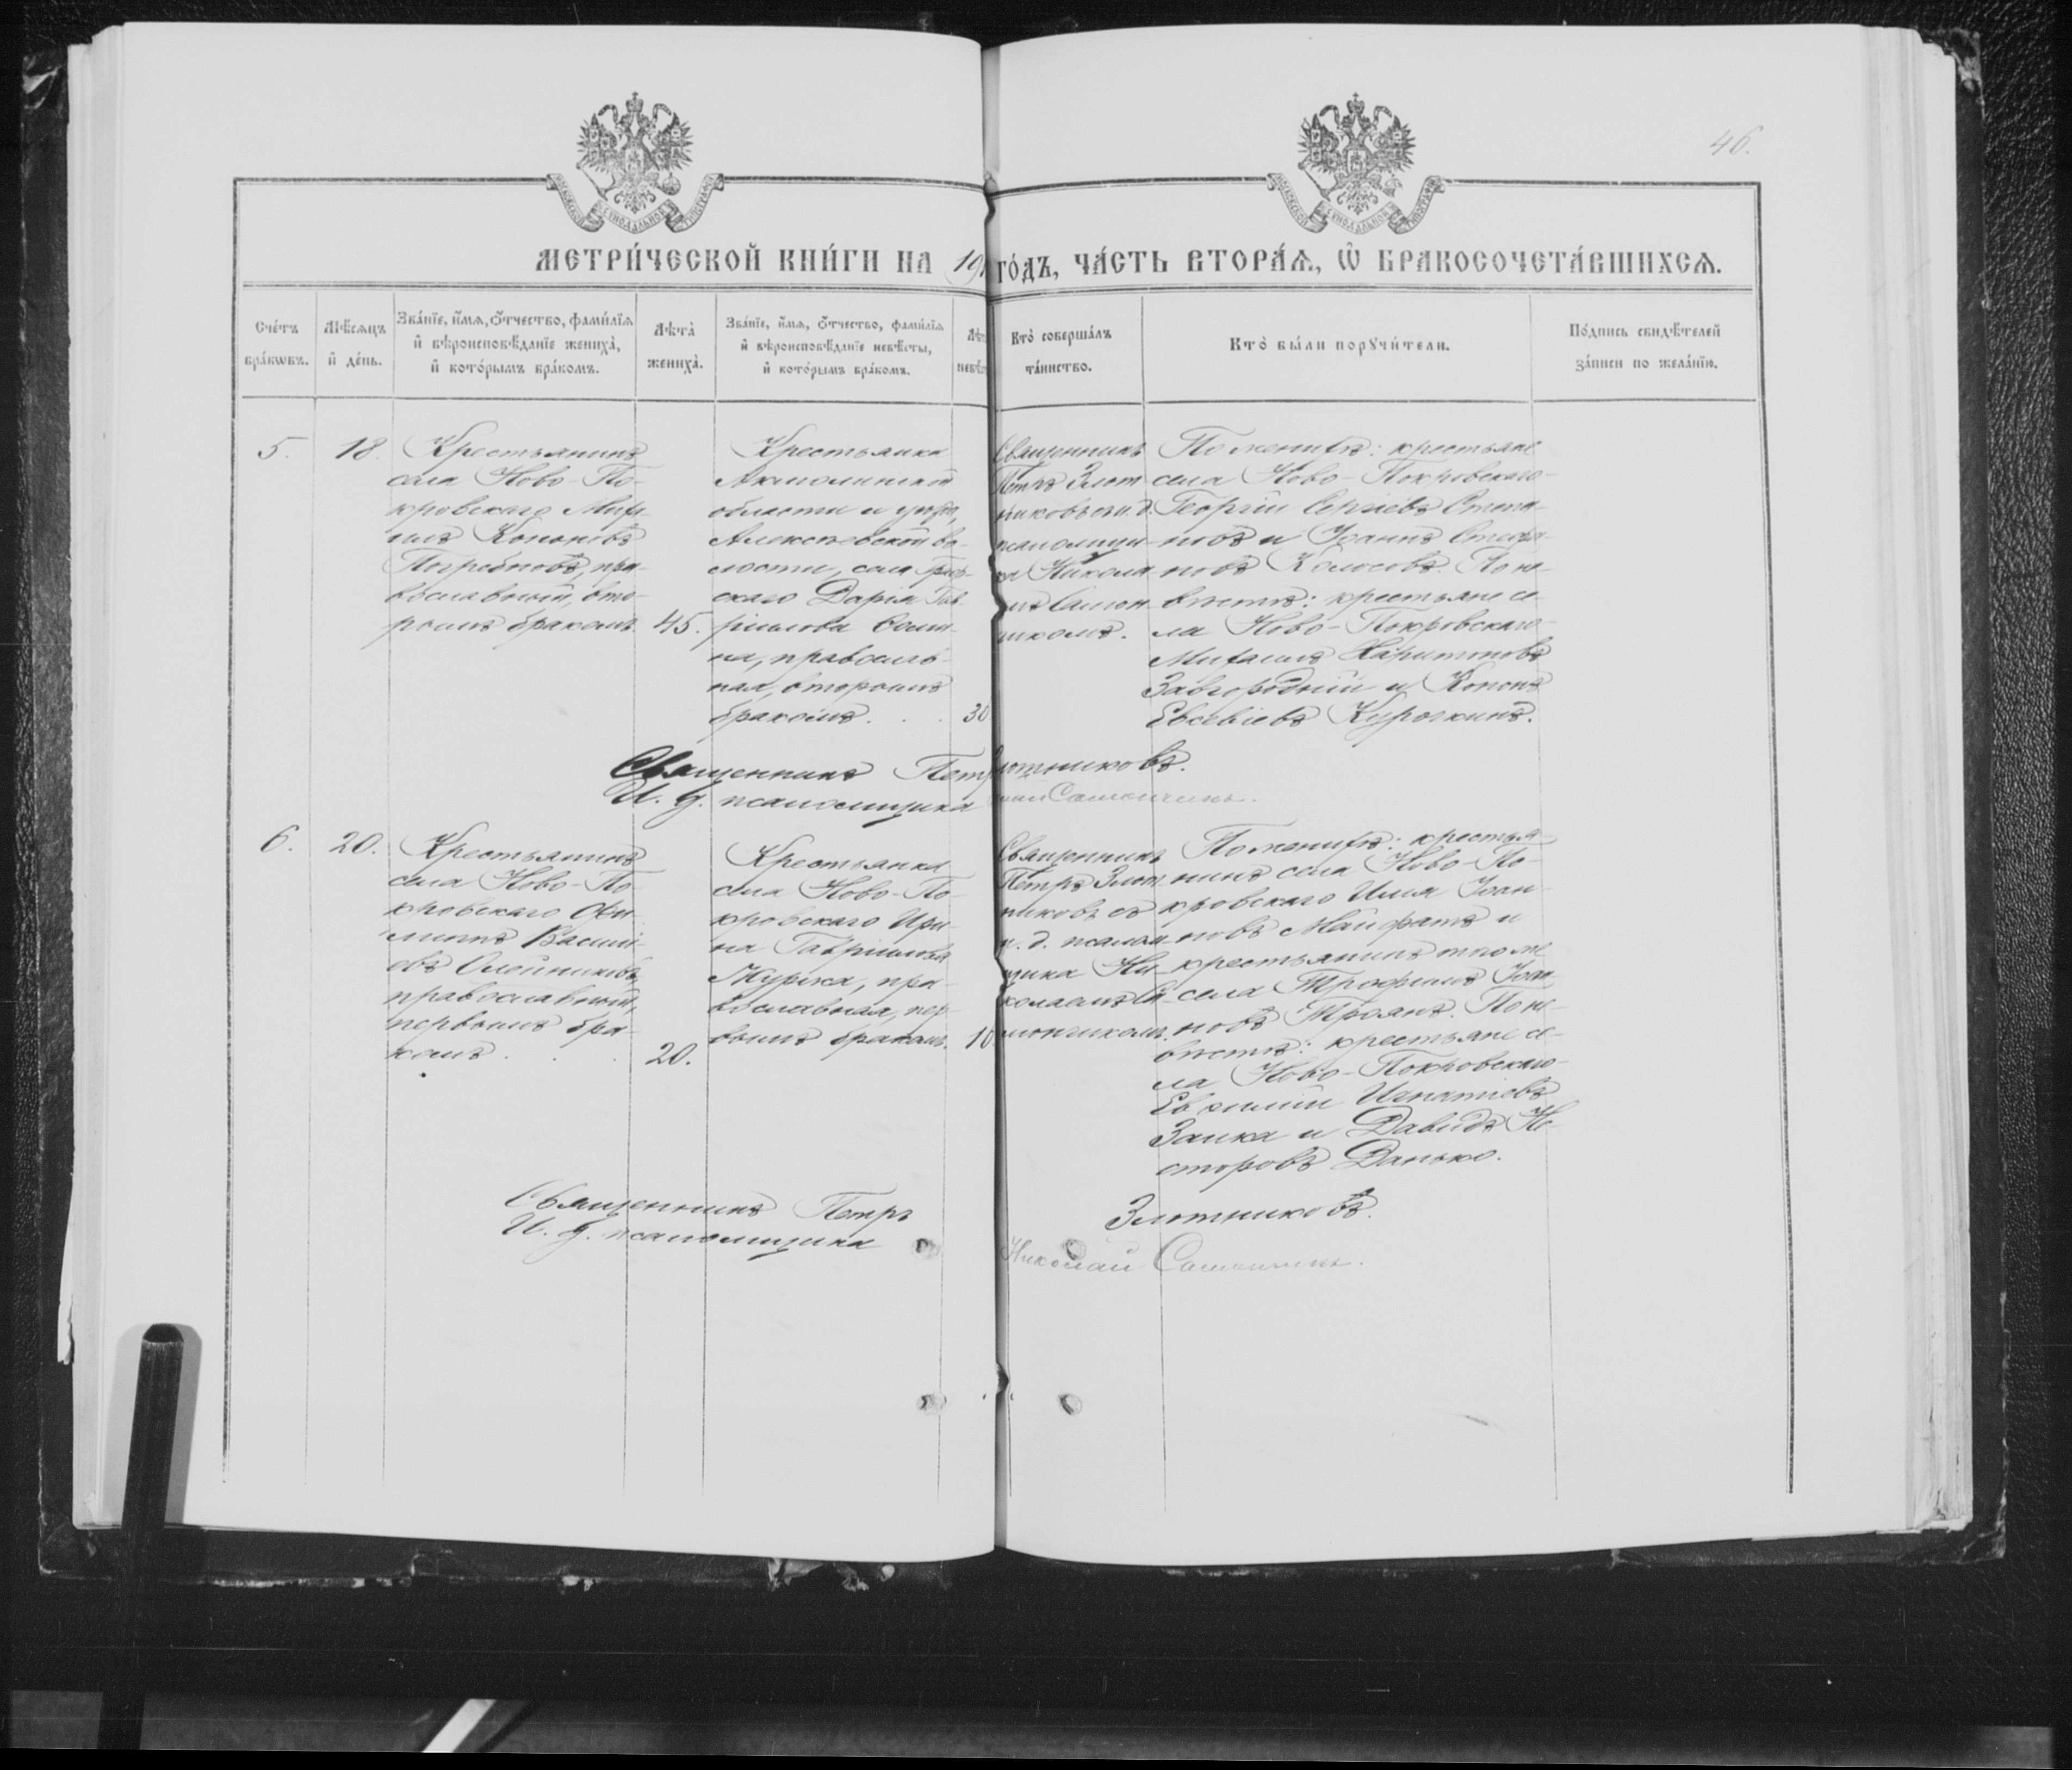 46.
МЕТРИ́ЧЕСКОЙ КНИ́ГИ НА 19 ГО́ДЪ, ЧА́СТЬ ВТОРА́Ѧ, Ѽ БРАКОСОЧЕТА́ВШИХСѦ.
Сче́тъ
бра́кѡвъ.
Мѣ́сѧцъ
и҆ де́нь.
Зва́нїе, и҆́мѧ, ѻ҆́тчество, фамѝлїѧ
и҆ вѣроисповѣ́данїе жениха̀,
и҆ кото́рымъ бра́комъ.
Лѣ́та̀
жениха̀.
Зва́нїе, и҆́мѧ, ѻ҆́тчество, фамѝлїѧ
и҆ вѣроисповѣ́данїе невѣ́сты,
и҆ кото́рымъ бра́комъ.
Кто̀ соверша́лъ
та́инство.
Кто̀ бы́ли порꙋчи́тели.
По́дпись свидѣ́телей
за́писи по жела́нїю.
5.
18.
Крестьянинъ
села Ново-По-
кровскаго Миха-
илъ Кононовъ
Погребновъ, пра-
вославный, вто-
рымъ бракомъ.
45.
Крестьянка
Акмолинской
области и уѣзда,
Алексѣевской во-
лости, села
скаго Дарія Гав-
ріилова
на, православ-
ная, вторымъ
бракомъ.
30
Священникъ
Петръ Злот
никовъ съ и. д.
псаломщи-
ка Никола
Самон
чикомъ.
По женихѣ: крестьяне
села Ново-Покровскаго
Георгій Сергіевъ Степа-
новъ и Іоаннъ Стефа-
новъ Колосовъ. По не-
вѣстѣ: крестьяне се-
ла Ново-Покровскаго
Михаилъ Харитоновъ
Завгородній и Кононъ
Евсевіевъ Курочкинъ.
Священникъ Петръ Злотниковъ.
И. д. псаломщика Самончикъ.
6.
20.
Крестьянинъ
села Ново-По-
кровскаго Фи-
липпъ Василі-
евъ Олейниковъ,
православный,
первымъ бра-
комъ
20.
Крестьянка
села Ново-По-
кровскаго Ири-
на Гавріилова
Журка, пра-
вославная, пер-
вымъ бракомъ.
Священникъ
Петръ Злот
никовъ съ
и. д. псалом-
щика Ни-
колаемъ Са-
мончикомъ.
По женихѣ: крестья-
нинъ села Ново-По-
кровскаго Илія Іоан-
новъ Майфатъ и
крестьянинъ того же
села Трофимъ Іоан-
новъ Троянъ. По не-
вѣстѣ: крестьяне се-
ла Ново-Покровскаго
Евфимій Игнатіевъ
Заика и Давидъ Не-
сторовъ Данько.
Священникъ Петръ Злотниковъ.
И. д. псаломщика Николай Самончикъ.